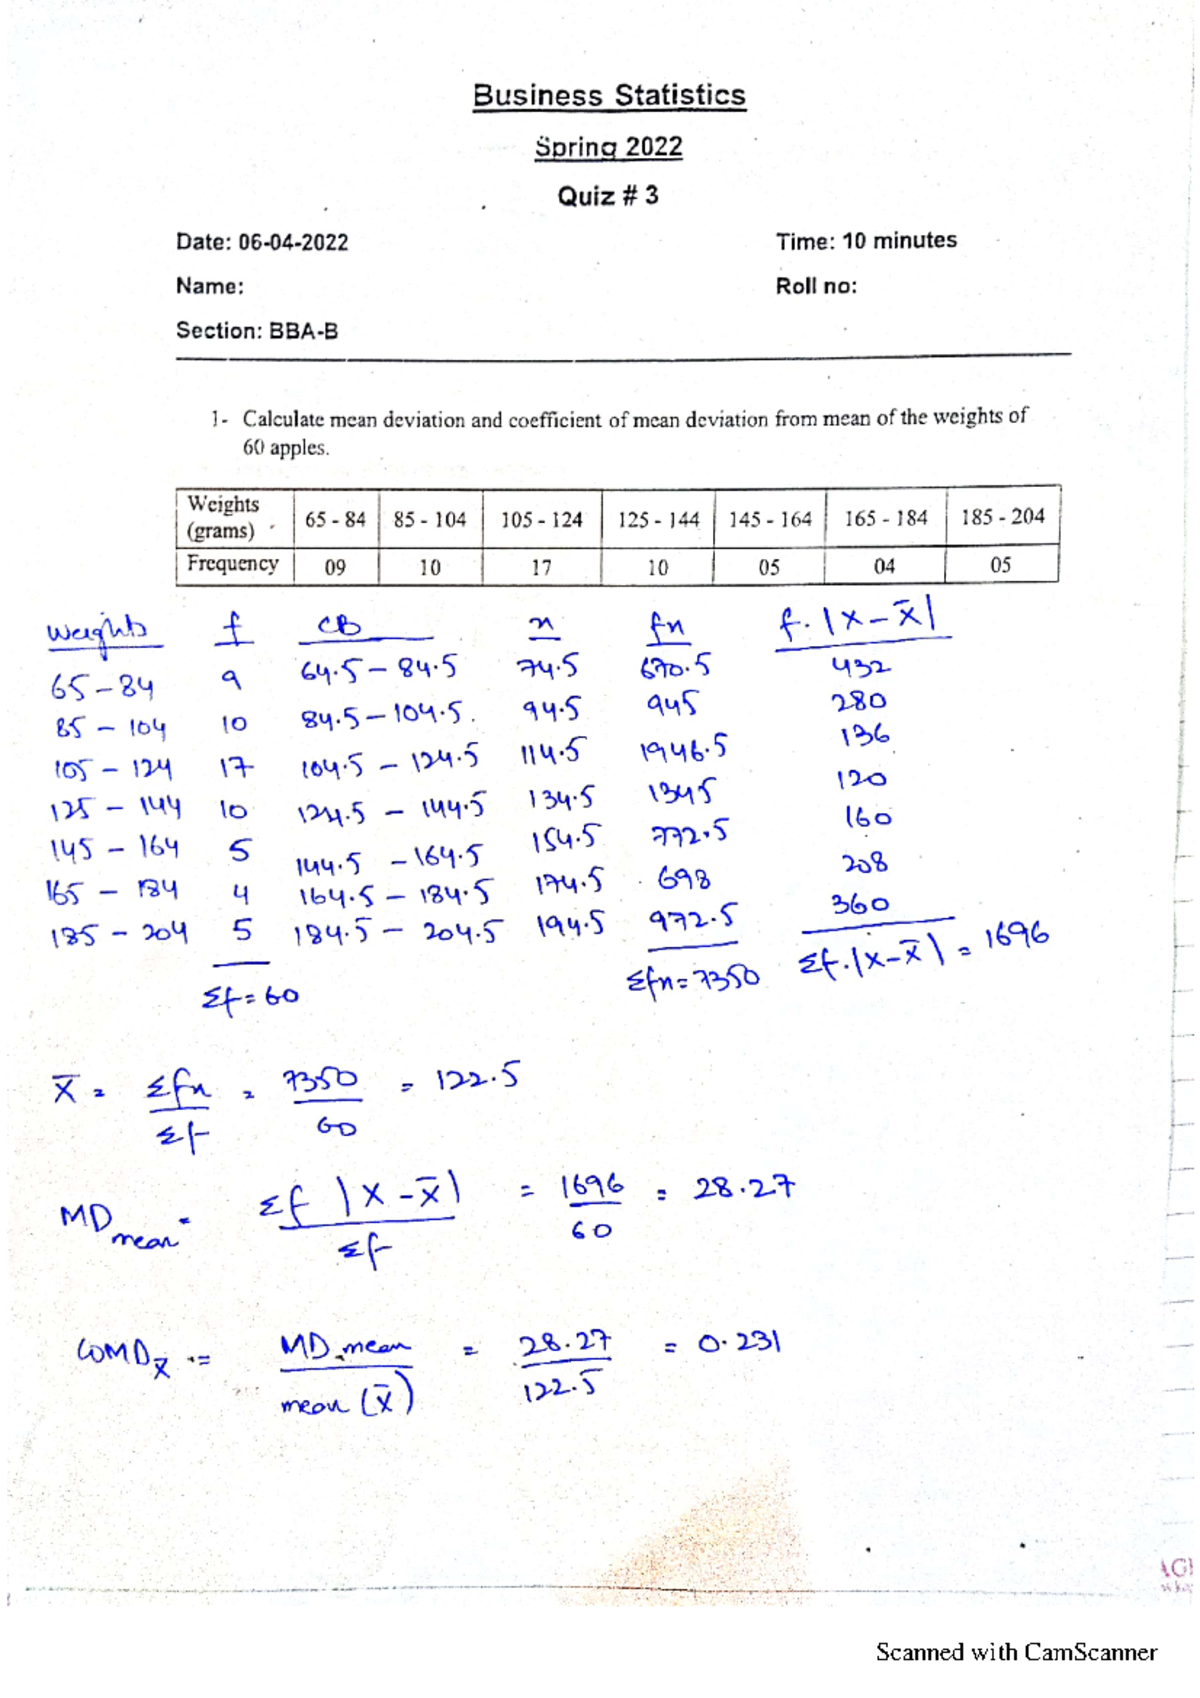 Business Statistics
Spring 2022
Quiz # 3
Date: 06-04-2022 Time: 10 minutes
Name: Roll no:
Section: BBA-B
1- Calculate mean deviation and coefficient of mean deviation from mean of the weights of
60 apples.
Weights (grams) 65 - 84 85 - 104 105 - 124 125 - 144 145 - 164 165 - 184 185 - 204
Frequency 09 10 17 10 05 04 05
Weights f CB x fx f.|X-X̄|
65-84 9 64.5-84.5 74.5 670.5 432
85-104 10 84.5-104.5 94.5 945 280
105-124 17 104.5-124.5 114.5 1946.5 136
125-144 10 124.5-144.5 134.5 1345 120
145-164 5 144.5-164.5 154.5 772.5 160
165-184 4 164.5-184.5 174.5 698 208
185-204 5 184.5-204.5 194.5 972.5 360
Σf=60 Σfx=7350 Σf.|X-X̄| = 1696
X̄ = Σfx/Σf = 7350/60 = 122.5
MD mean = Σf|X-X̄|/Σf = 1696/60 = 28.27
COMD X̄ = MD.mean/mean (X̄) = 28.27/122.5 = 0.231
Scanned with CamScanner